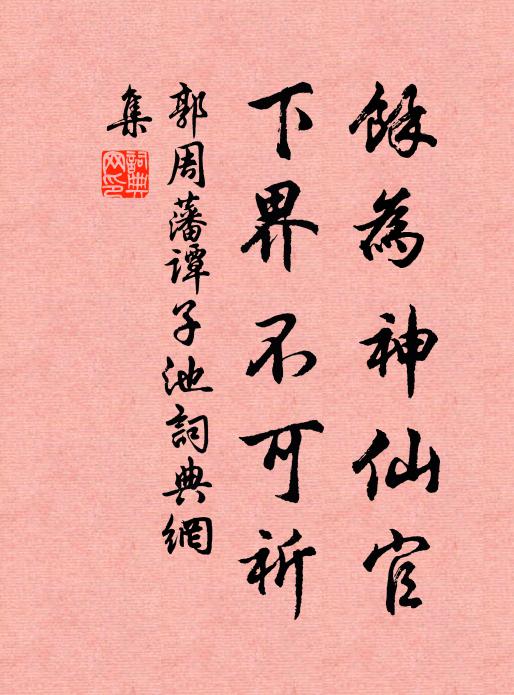 餘為神仙官
下界不可祈
郭周藩譚子池詞典網
集
詞典
网印